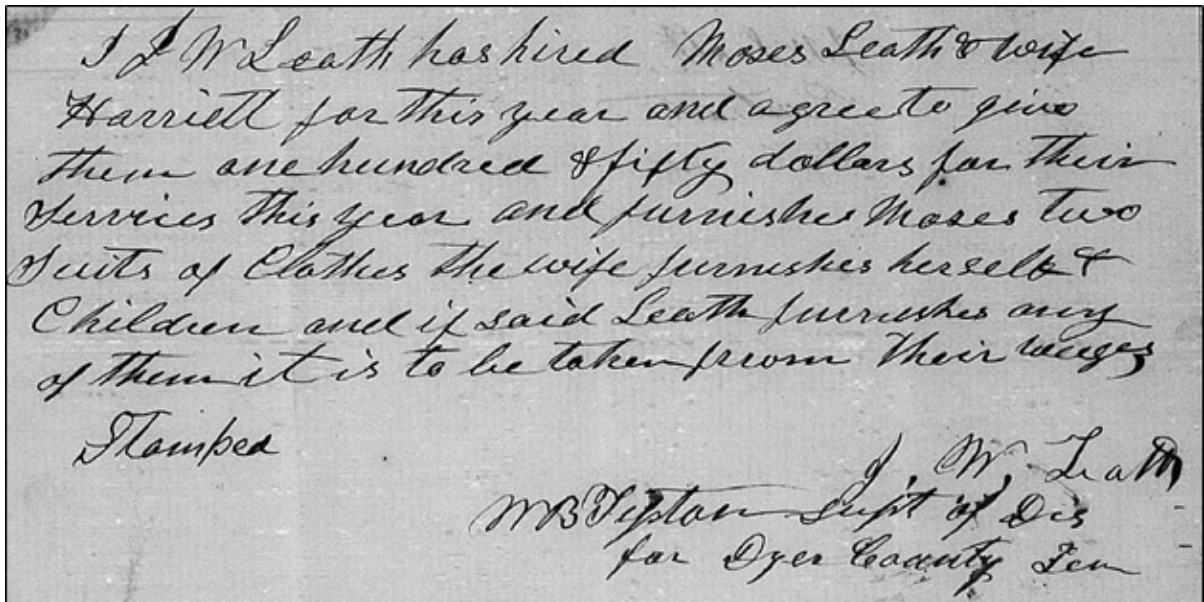 I J W Leath has hired Moses Leath & wife
Harriett for this year and agree to give
them one hundred & fifty dollars for their
Services this year and furnishes Moses two
Suits of Clothes the wife furnishes herself &
Children and if said Leath furnishes any
of them it is to be taken from their wages
Stamped
J. W. Leath
W B Tipton Supt of Dis
for Dyer County Ten